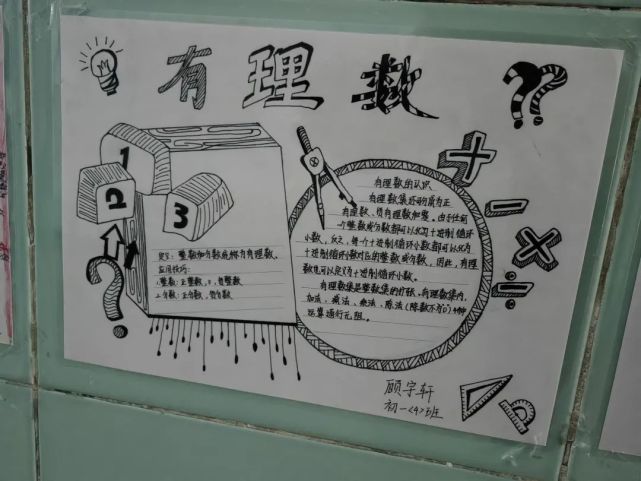 有理数
??
1
2
3
?
+
-
×
÷
定义：整数和分数统称为有理数。
应用技巧：
1.整数：正整数，0，负整数
2.分数：正分数，负分数
有理数的认识
有理数集还可分为正
有理数、负有理数和零。由于任何
一个整数或分数都可以化为十进制循环
小数，反之，每一个十进制循环小数都可以化为
整数或分数，因此，有理
数也可以定义为十进制循环小数。
有理数集是整数集的扩张。有理数集内，
加法、减法、乘法、除法（除数不为0）4种
运算通行无阻。
顾宇轩
初一<4>班